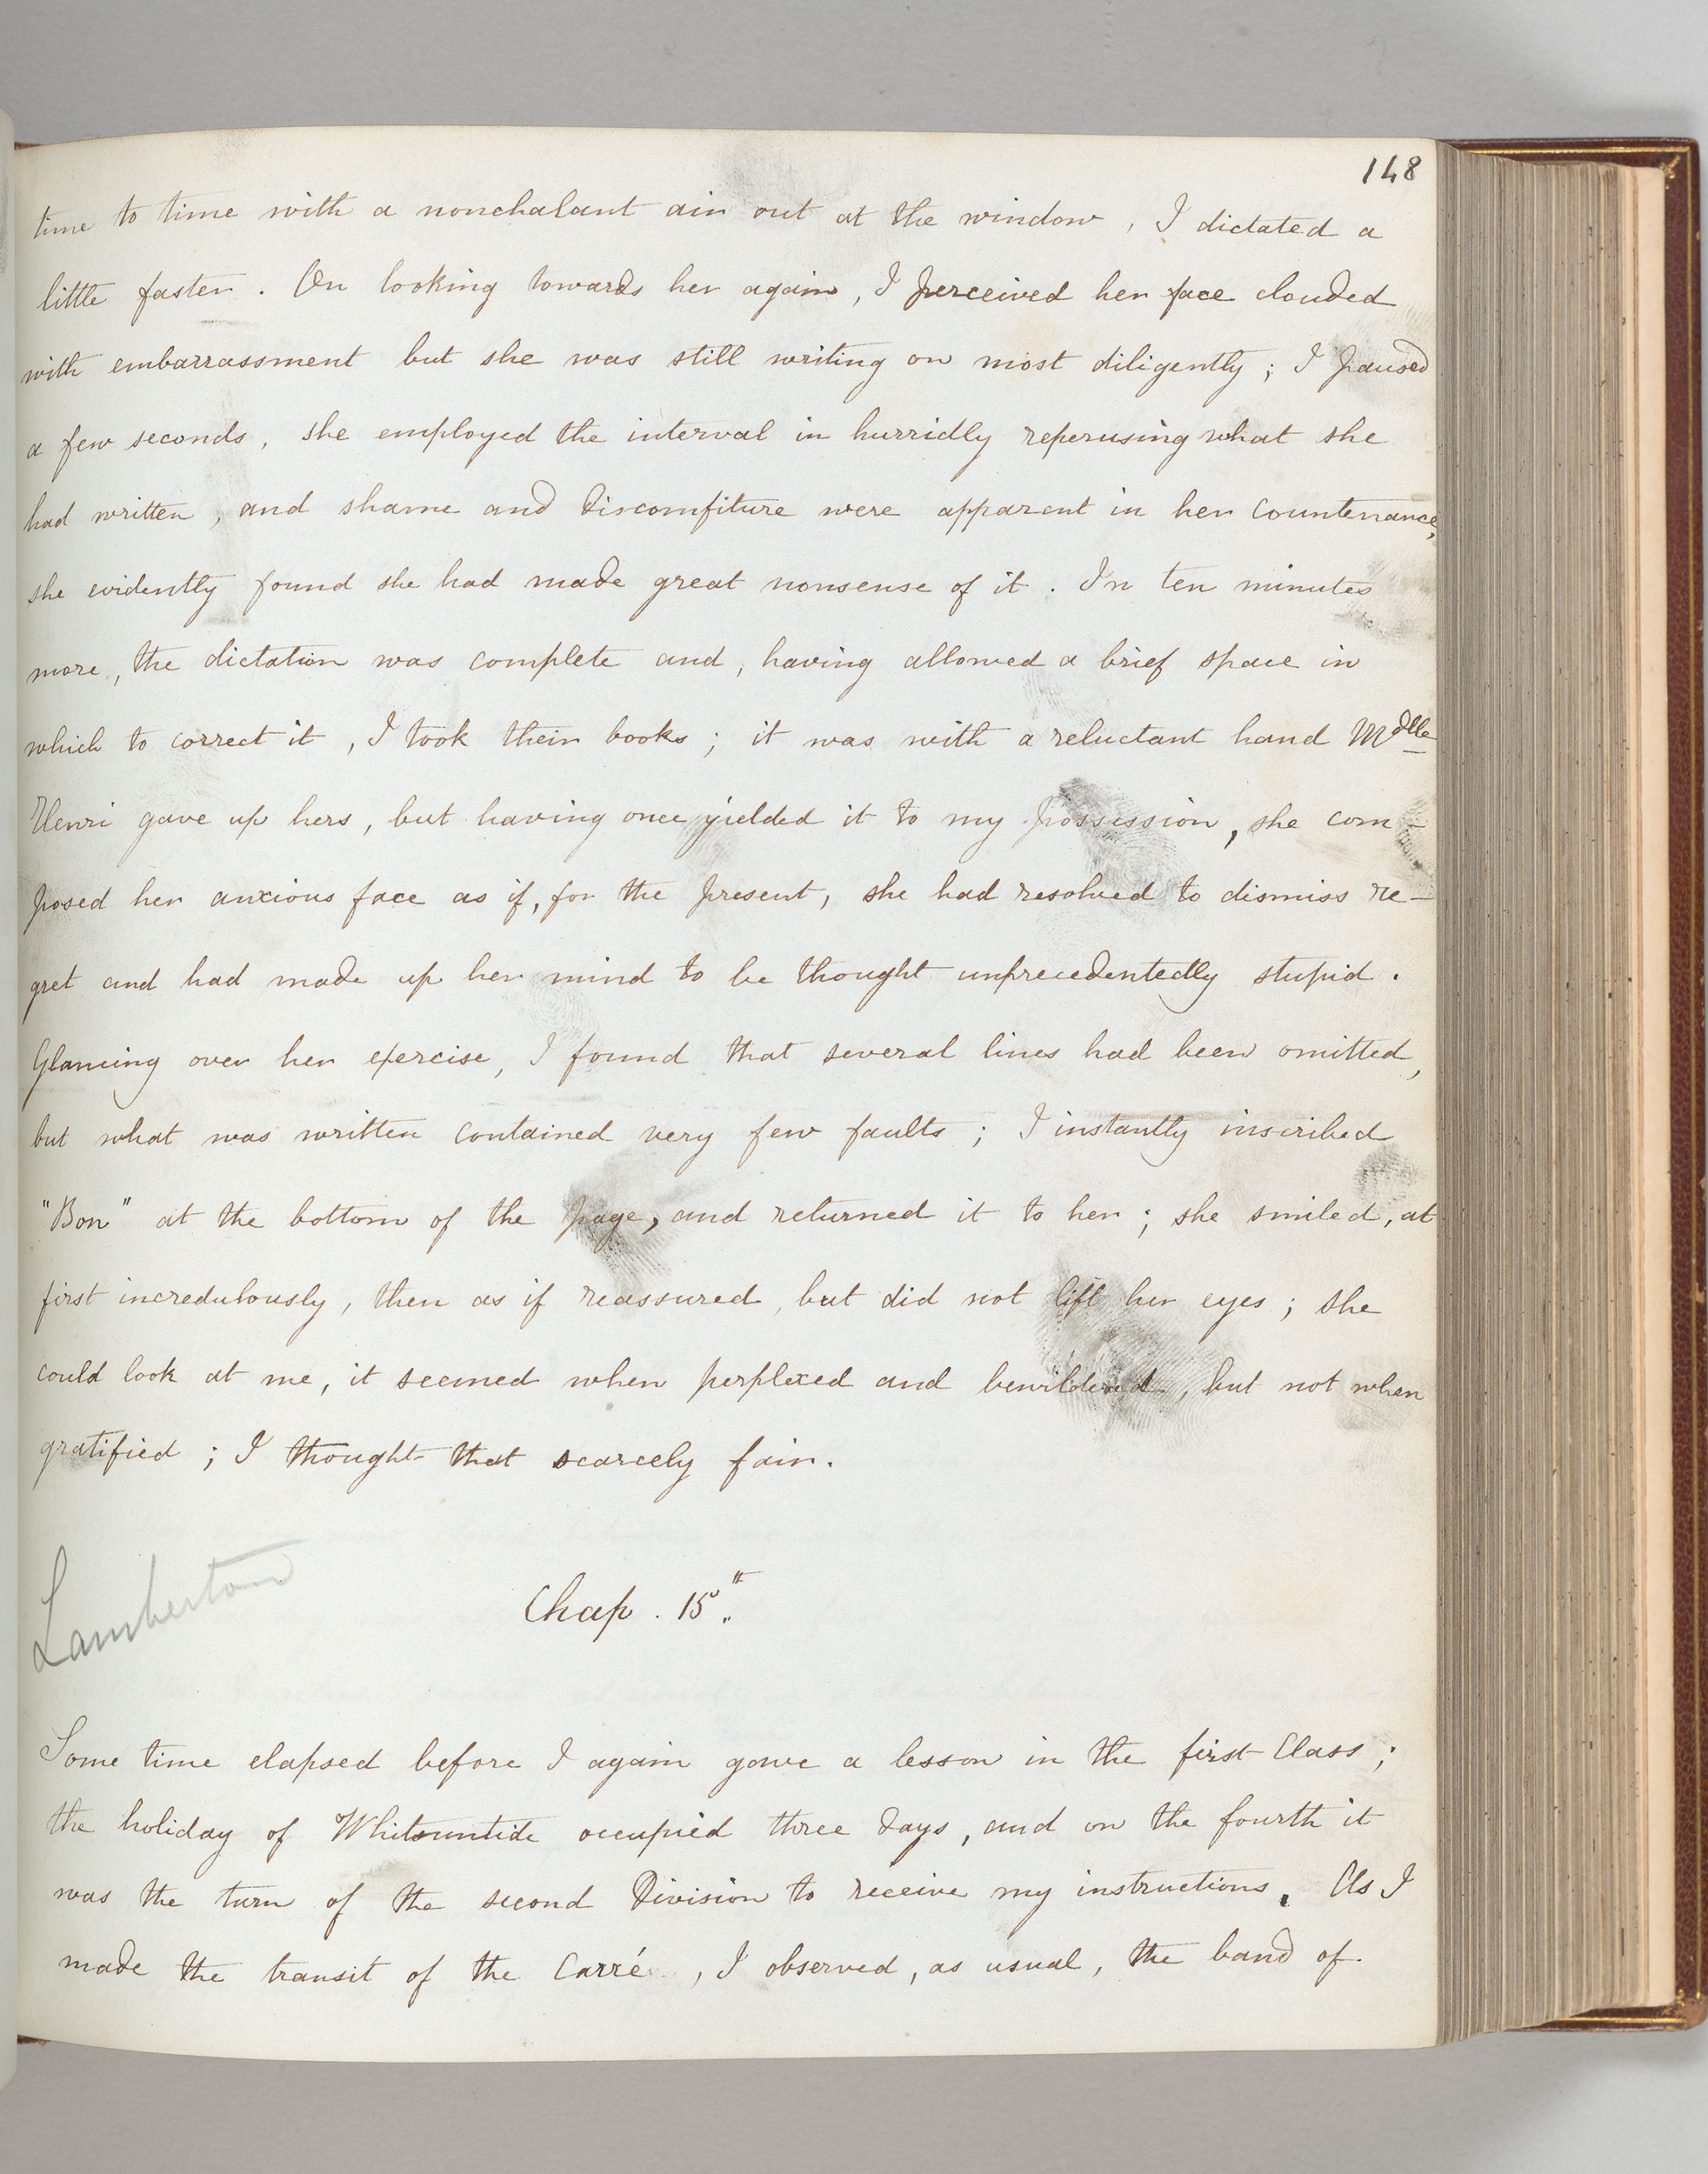 148
time to time with a nonchalant air out at the window, I dictated a
little faster. On looking towards her again, I perceived her face clouded
with embarrassment but she was still writing on most diligently; I paused
a few seconds, she employed the interval in hurridly reperusing what she
had written, and shame and discomfiture were apparent in her countenance,
she evidently found she had made great nonsense of it. In ten minutes
more, the dictation was complete and, having allowed a brief space in
which to correct it, I took their books; it was with a reluctant hand Mdlle
Henri gave up hers, but having once yielded it to my possession, she com-
posed her anxious face as if, for the present, she had resolved to dismiss re-
gret and had made up her mind to be thought unprecedentedly stupid.
Glancing over her exercise, I found that several lines had been omitted,
but what was written contained very few faults; I instantly inscribed
"Bon" at the bottom of the page, and returned it to her; she smiled, at
first incredulously, then as if reassured, but did not lift her eyes; she
could look at me, it seemed when perplexed and bewildered, but not when
gratified; I thought that scarcely fair.
Lamberton
Chap. 15th
Some time elapsed before I again gave a lesson in the first Class;
the holiday of Whitsuntide occupied three days, and on the fourth it
was the turn of the second Division to receive my instructions. As I
made the transit of the Carré, I observed, as usual, the band of